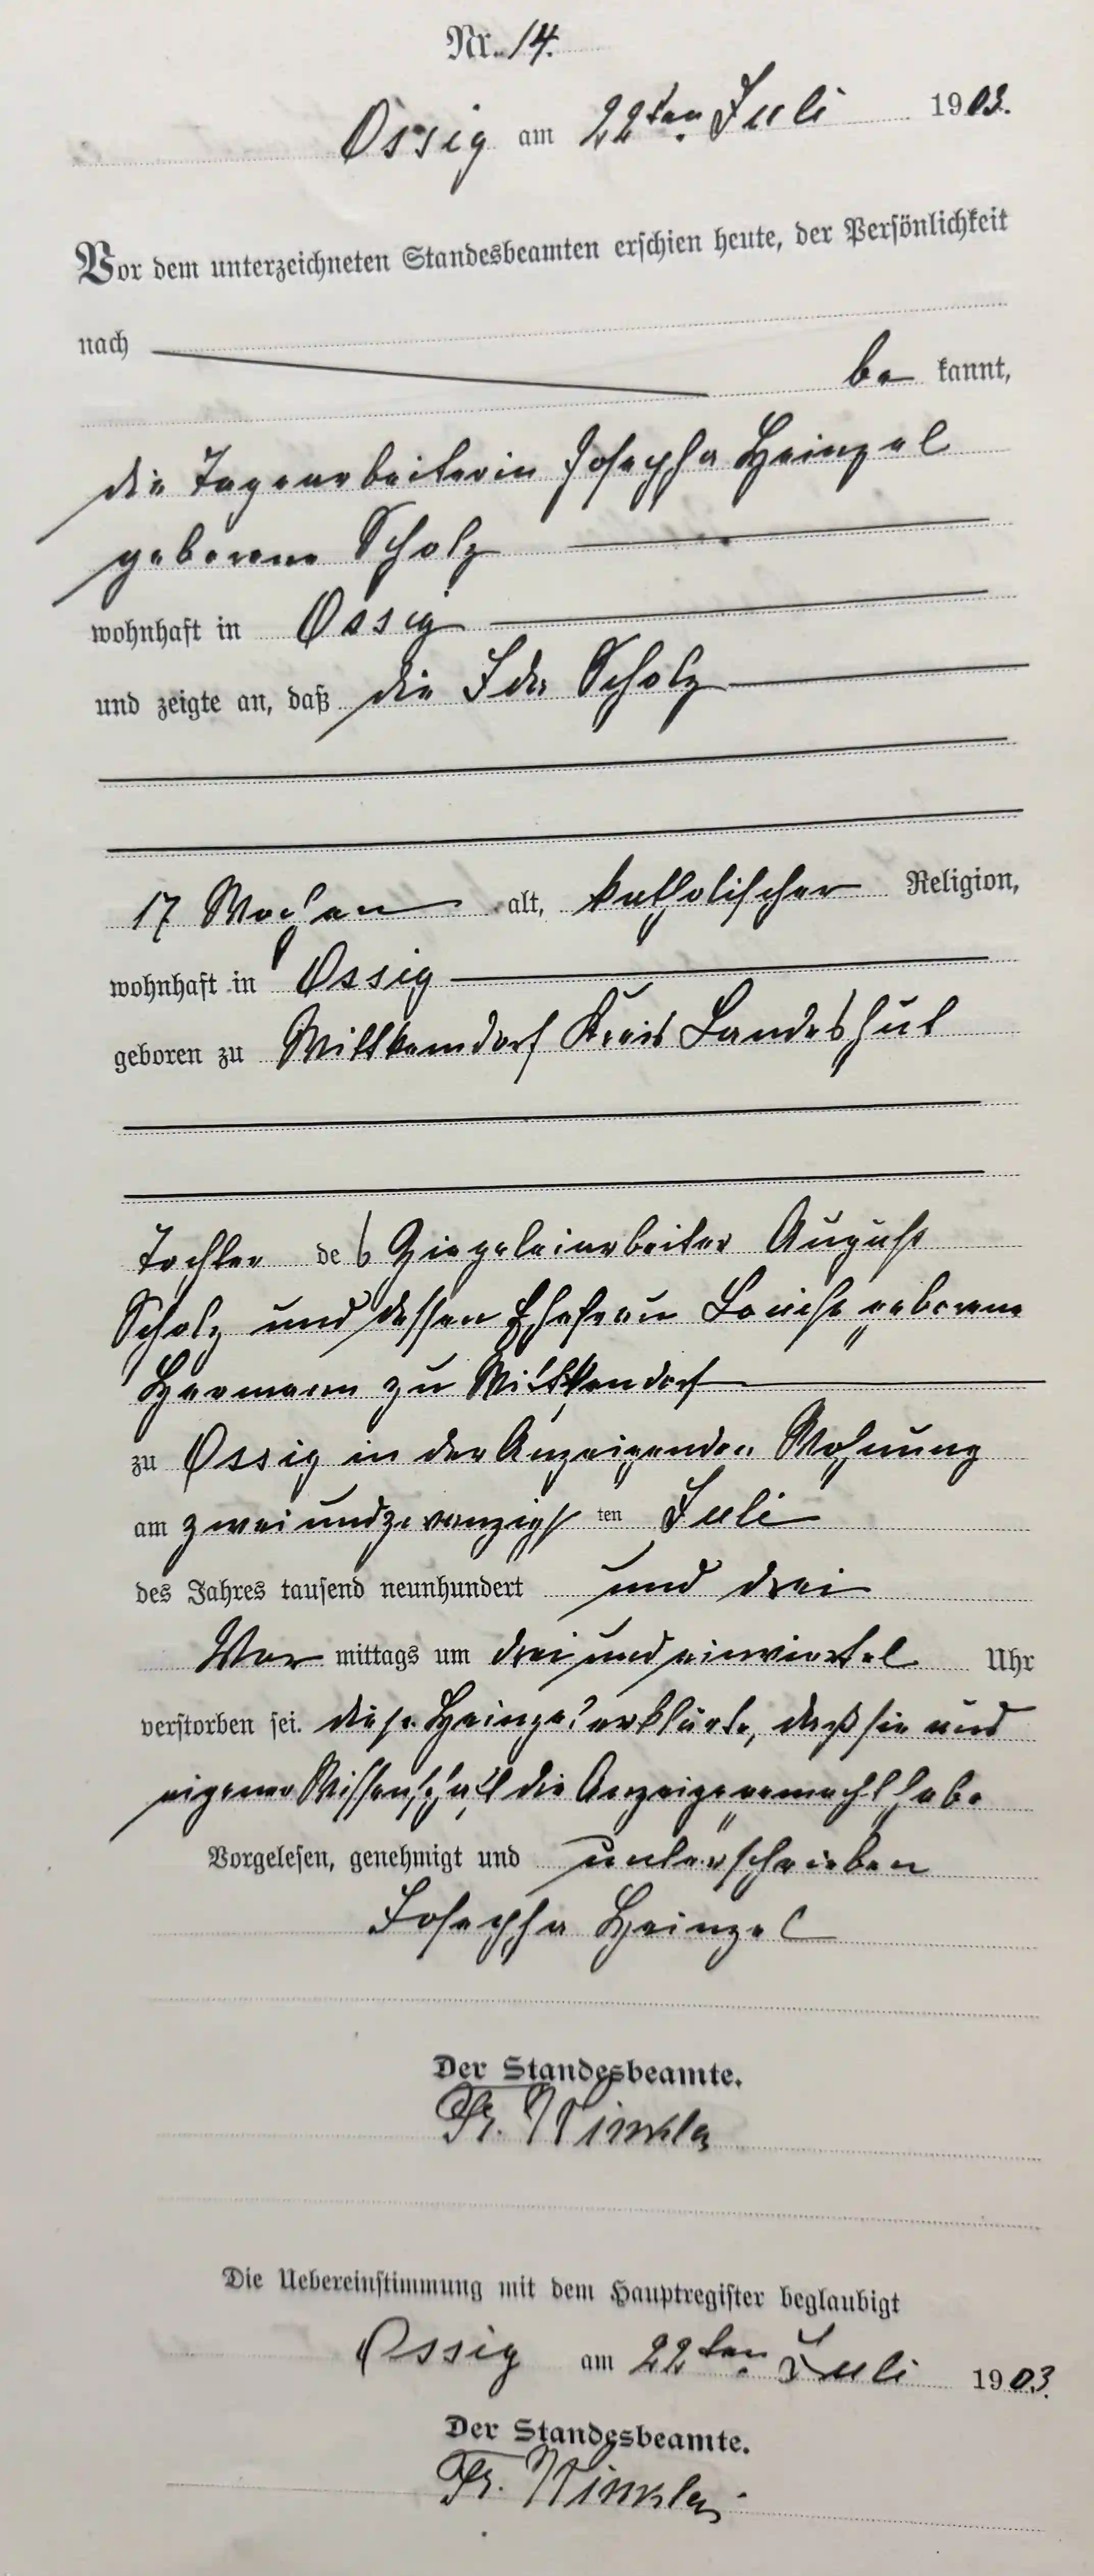 Nr. 14.
Ossig am 22ten Juli 1903.
Vor dem unterzeichneten Standesbeamten erschien heute, der Persönlichkeit
nach
be kannt,
die Tagearbeiterin Josepha Heinzel
geborene Scholz
wohnhaft in Ossig
und zeigte an, daß die Ida Scholz
17 Wochen alt, katholischer Religion,
wohnhaft in Ossig
geboren zu Wittkendorf Kreis Landeshut
Tochter des Ziegeleiarbeiter August
Scholz und dessen Ehefrau Louise geborene
Hermann zu Wittkendorf
zu Ossig in der Anzeigenden Wohnung
am zweiundzwanzigs ten Juli
des Jahres tausend neunhundert und drei
Vor mittags um drei und einviertel Uhr
verstorben sei. diese Heinzel erklärte, daß sie aus
eigener Wissenschaft die Anzeige gemacht habe
Vorgelesen, genehmigt und unterschrieben
Josepha Heinzel
Der Standesbeamte.
Fr. Winkler
Die Uebereinstimmung mit dem Hauptregister beglaubigt
Ossig am 22ten Juli 1903.
Der Standesbeamte.
Fr. Winkler